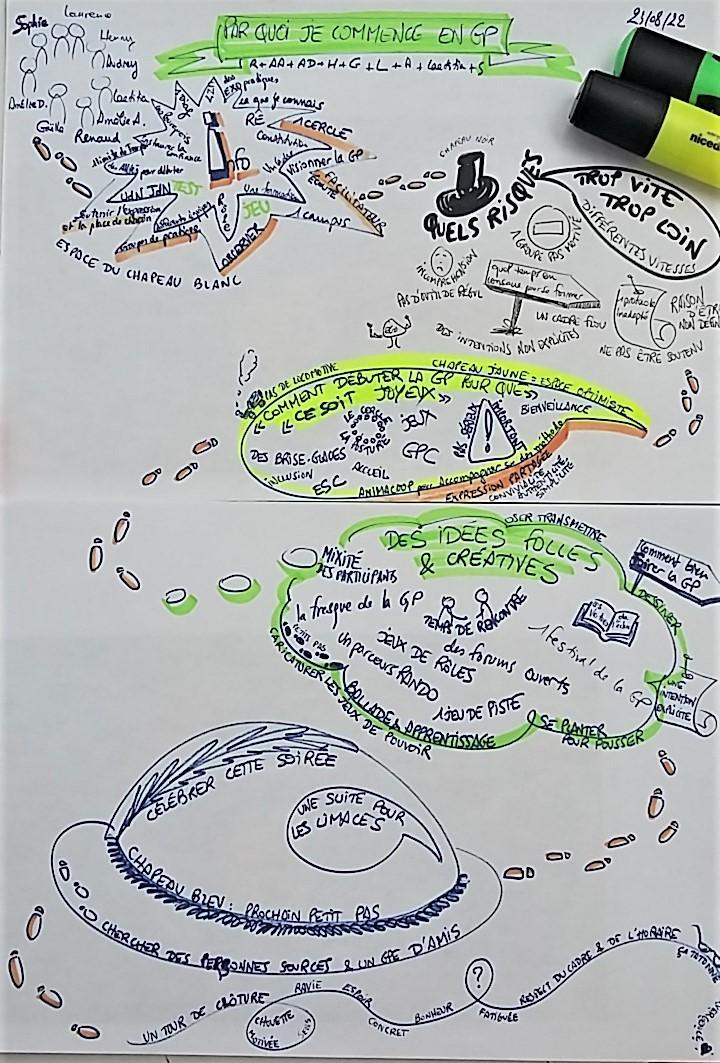 PAR QUOI JE COMMENCE EN GP
23/08/22
R + AA + AD + H + G + L + A + Laetitia + S
Sophie
Laurence
Henry
Audrey
Laetitia
Amélie A.
Amélie D.
Gaëlle
Renaud
des EXO pratiques
ce que je connais
RÉ
1 CERCLE
Constitution
Visionner la GP
ÉCOUTE
FACILITATEUR
Info
TEST
Une formation
JEU
1 campus
OBSERVER
et la place de chacun
Groupe de pratique
ESPACE DU CHAPEAU BLANC
CHAPEAU NOIR
QUELS RISQUES
TROP VITE
TROP LOIN
DIFFÉRENTES VITESSES
1 GROUPE PAS MOTIVÉ
INCOMPRÉHENSION
PAS D'OUTIL DE RÉGUL
quel temps on
consacre pour se former
UN CADRE FLOU
DES INTENTIONS NON EXPLICITES
1 protocole
inadapté
RAISON
D'ÊTRE
NE PAS ÊTRE SOUTENU
PAS DE LOCOMOTIVE
CHAPEAU JAUNE : ESPACE OPTIMISTE
"COMMENT DÉBUTER LA GP POUR QUE
"CE SOIT JOYEUX"
LE CERCLE
LA POSTURE
JEUX
BIENVEILLANCE
DES BRISE-GLACES
GPC
INCLUSION
ACCUEIL
ESC
ANIMACOOP pour Accompagner sur des méthodes
EXPRESSION PARTAGÉE
CONVIVIALITÉ
AUTHENTICITÉ
SIMPLICITÉ
DES IDÉES FOLLES
& CRÉATIVES
OSER TRANSMETTRE
Comment bien
foirer la GP
DESSINER
MIXITÉ
DES PARTICIPANTS
la fresque de la GP
TEMPS DE RENCONTRE
PETITS PAS
JEUX DE RÔLES
des forums ouverts
1 festival de la GP
Un parcours RANDO
1 JEU DE PISTE
UNE
INTENTION
EXPLICITE
BALLADE & APPRENTISSAGE
SE PLANTER
POUR POUSSER
CARICATURER LES JEUX DE POUVOIR
CÉLÉBRER CETTE SOIRÉE
UNE SUITE POUR
LES LIMACES
CHAPEAU BLEU : PROCHAIN PETIT PAS
CHERCHER DES PERSONNES SOURCES & UN GPE D'AMIS
UN TOUR DE CLÔTURE
CHOUETTE
MOTIVÉE
SENS
RAVIE
ESPOIR
CONCRET
BONHEUR
?
FATIGUÉE
RESPECT DU CADRE & DE L'HORAIRE